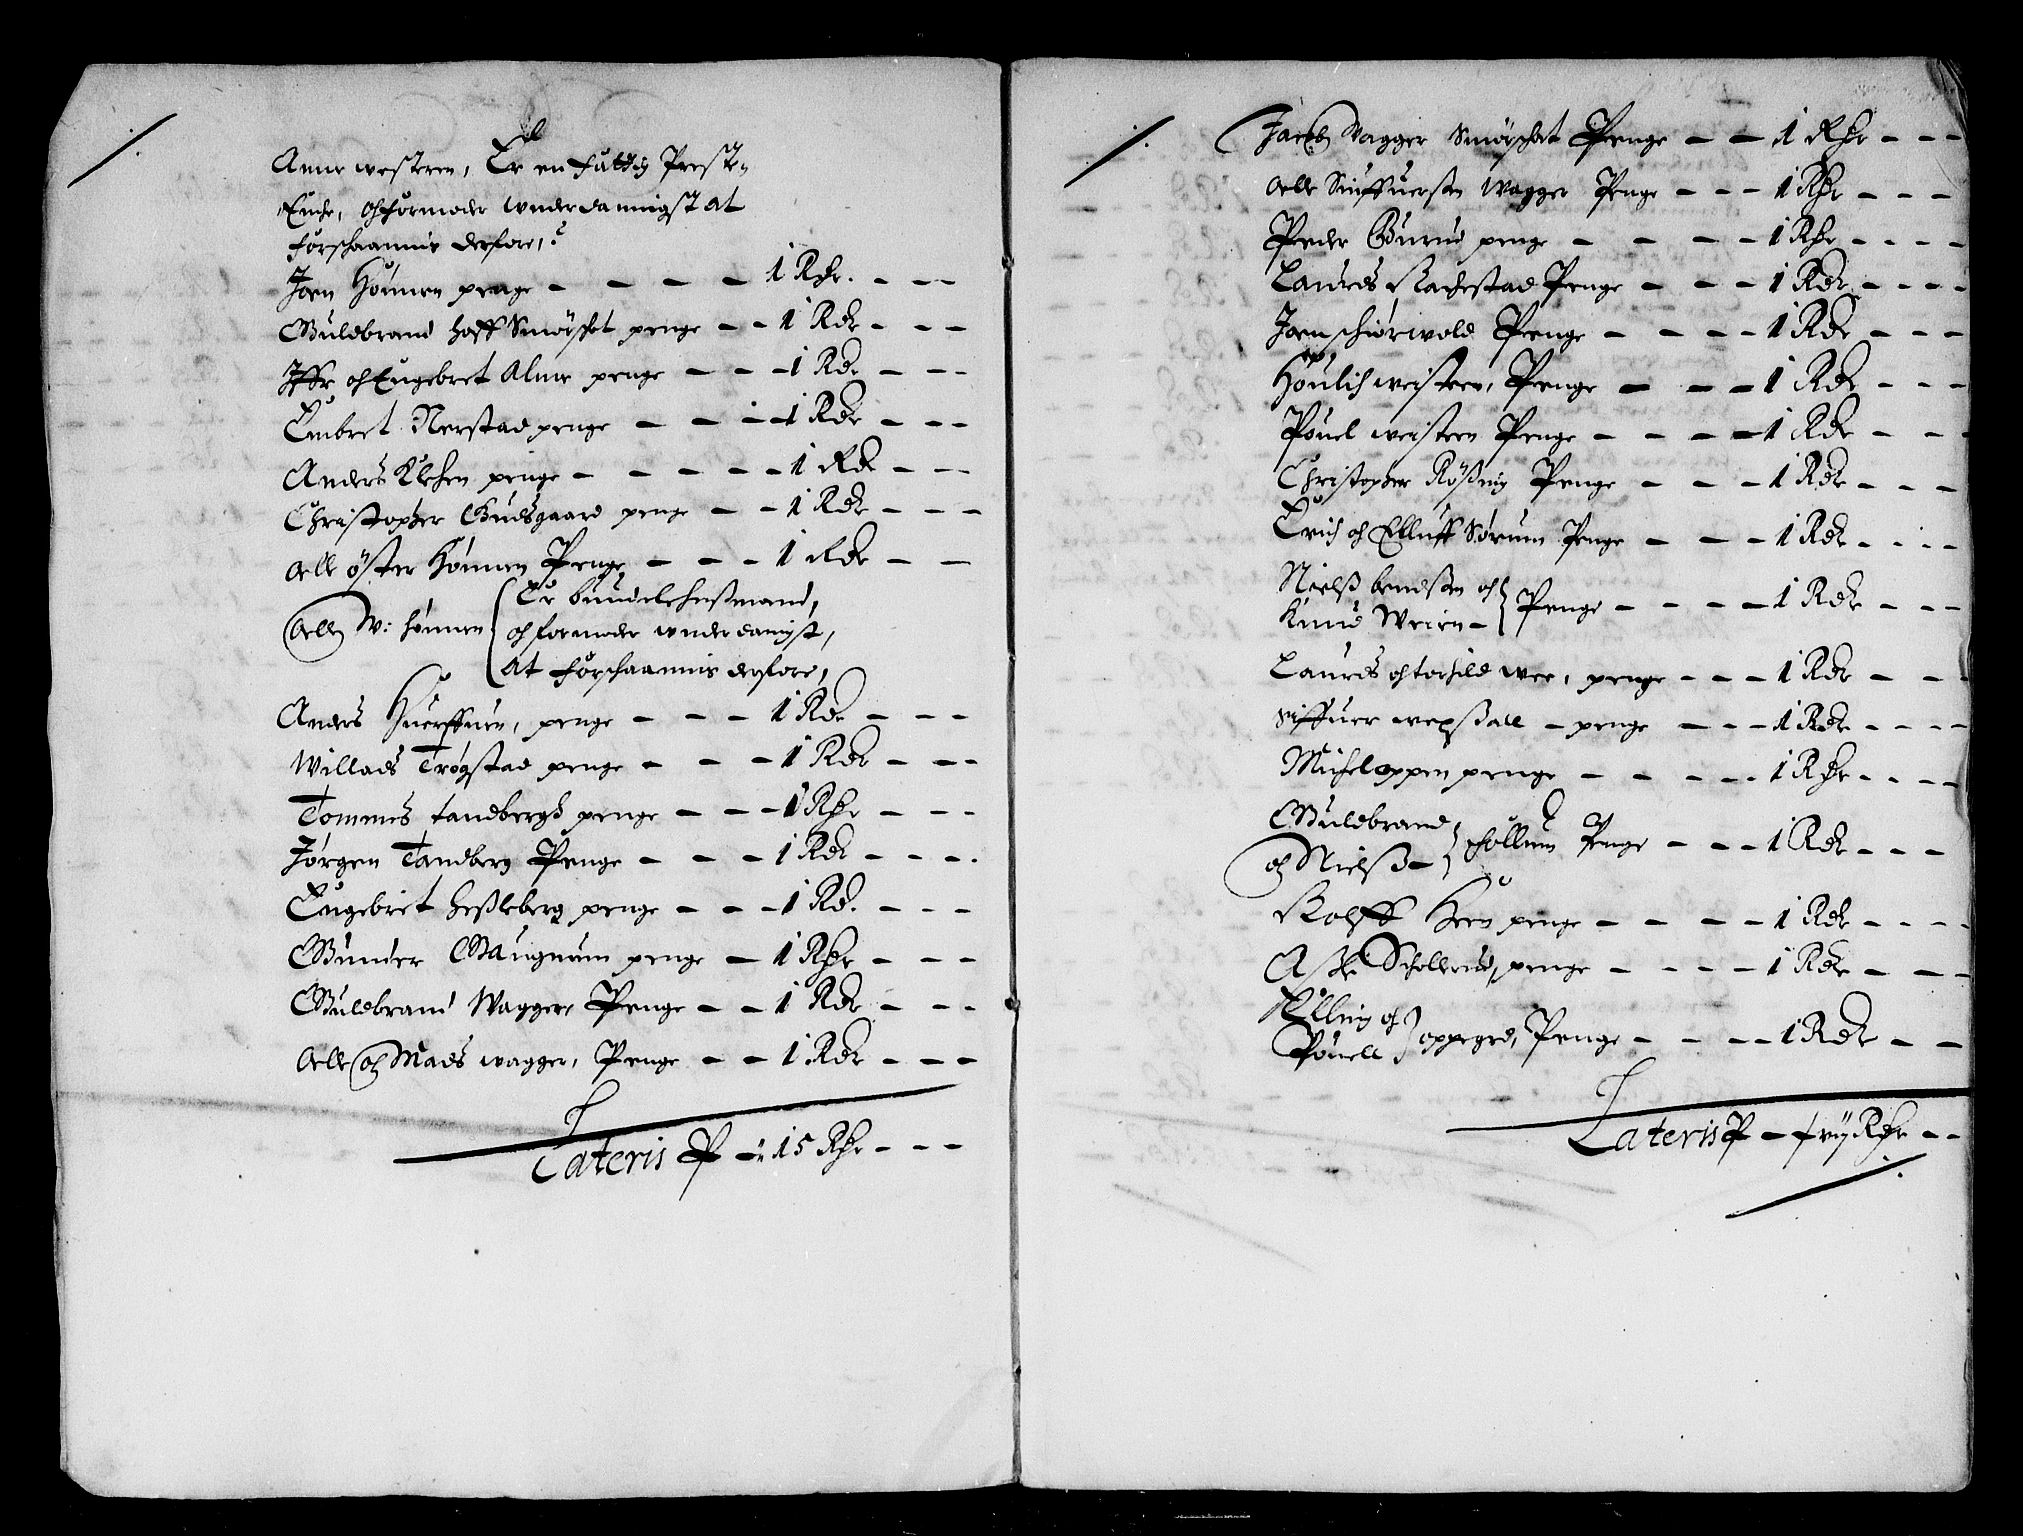 Anne westeren, Er en fattig Preste
Encke, och formoder wnderdannigst at
forschaannis derfore,
Joen Hønnen penge - - - - 1 Rdr. - - -
Guldbrand Hoff Smørschat penge - - 1 Rdr - - -
Iffr och Engebret Alme penge - - - 1 Rdr - - -
Embret Nerstad penge - - - 1 Rdr - - -
Anders Klchen penge - - - - - 1 Rdr - - -
Christopher Gudsgaard penge - - 1 Rdr - - -
Olle öster Hønnen Penge - - - 1 Rdr - -
Olle W: Hønnen
Er buudelehnsmand,
och formoder wnderdanigst,
At forschaannis derfore,
Anders Huerffuen, penge - - - 1 Rdr - - -
Willads Trøgstad penge - - - 1 Rdr - - -
Tommes tandbergs penge - - - 1 Rdr - - -
Jørgen Tandberg Penge - - - 1 Rdr - - - -
Engebret Hesleberg penge - - - 1 Rd. - - -
Gunder Gaugnum penge - 1 Rdr - - -
Guldbrand Wagger Penge - - 1 Rdr - - -
Olle och Mads wagger, Penge - - 1 Rdr - - -
Lateris P - 15 Rdr - - -
Jacob Vagger Smørschat Penge - - 1 Rdr - - -
Olle Siuffuersen Wagger Penge - - - 1 Rdr - - -
Peder Burud penge - - - - 1 Rdr - - - -
Laurds Rachestad Penge - - - 1 Rdr - - - -
Joen schiørwold Penge - - - - 1 Rdr - - -
Høulich weisteren, Penge - - - 1 Rdr - - -
Pouel weisteren Penge - - - - 1 Rdr - - -
Christopher Rößing Penge - - - 1 Rdr - - -
Erich och Elluff Sørum Penge - - - 1 Rdr - - - -
Nielß bendßen och
Knud Weien -
Penge - - - - 1 Rdr - - -
Laurds och torhild wee, penge - - - 1 Rdr - - -
Siffuer wepßall - penge - - - 1 Rdr - - - -
Michel oppen penge - - - - - 1 Rdr - - - -
Guldbrand
och Nielß -
schollum Penge - - - 1 Rdr - - -
Rolff Heen penge - - - - 1 Rdr - - - -
Aske Schollerud, penge - - - - 1 Rdr - - -
Elling och
Pouell
oppegrd, Penge - - - - 1 Rdr - -
Lateris P - xvij Rdr - -